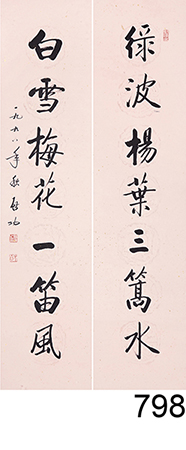 綠波楊葉三篙水
白雪梅花一笛風
一九九八年秋 啟功
798